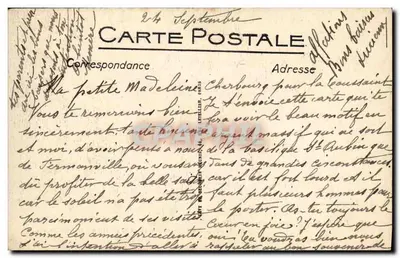 24 Septembre
CARTE POSTALE
Correspondance
Adresse
Ma petite Madeleine
Vous te remercions bien
sincèrement, tante
et moi, d'avoir pensé à nous
de Fermanville, où vous avez
dû profiter de la belle saison
car le soleil n'a pas été trop
parcimonieux de ses visites
Comme les années précédentes,
j'ai l'intention d'aller à
Cherbourg pour la Toussaint
Je t'envoie cette carte qui te
fera voir le beau motif en
massif qui
la basilique St Aubin que
dans de grandes circonstances,
car il est fort lourd et il
faut plusieurs hommes pour
le porter. As-tu toujours le
Cœur en joie? J'espère que
oui! Tu voudras bien nous
rappeler au bon souvenir de
tes parents
affectueux
bons baisers